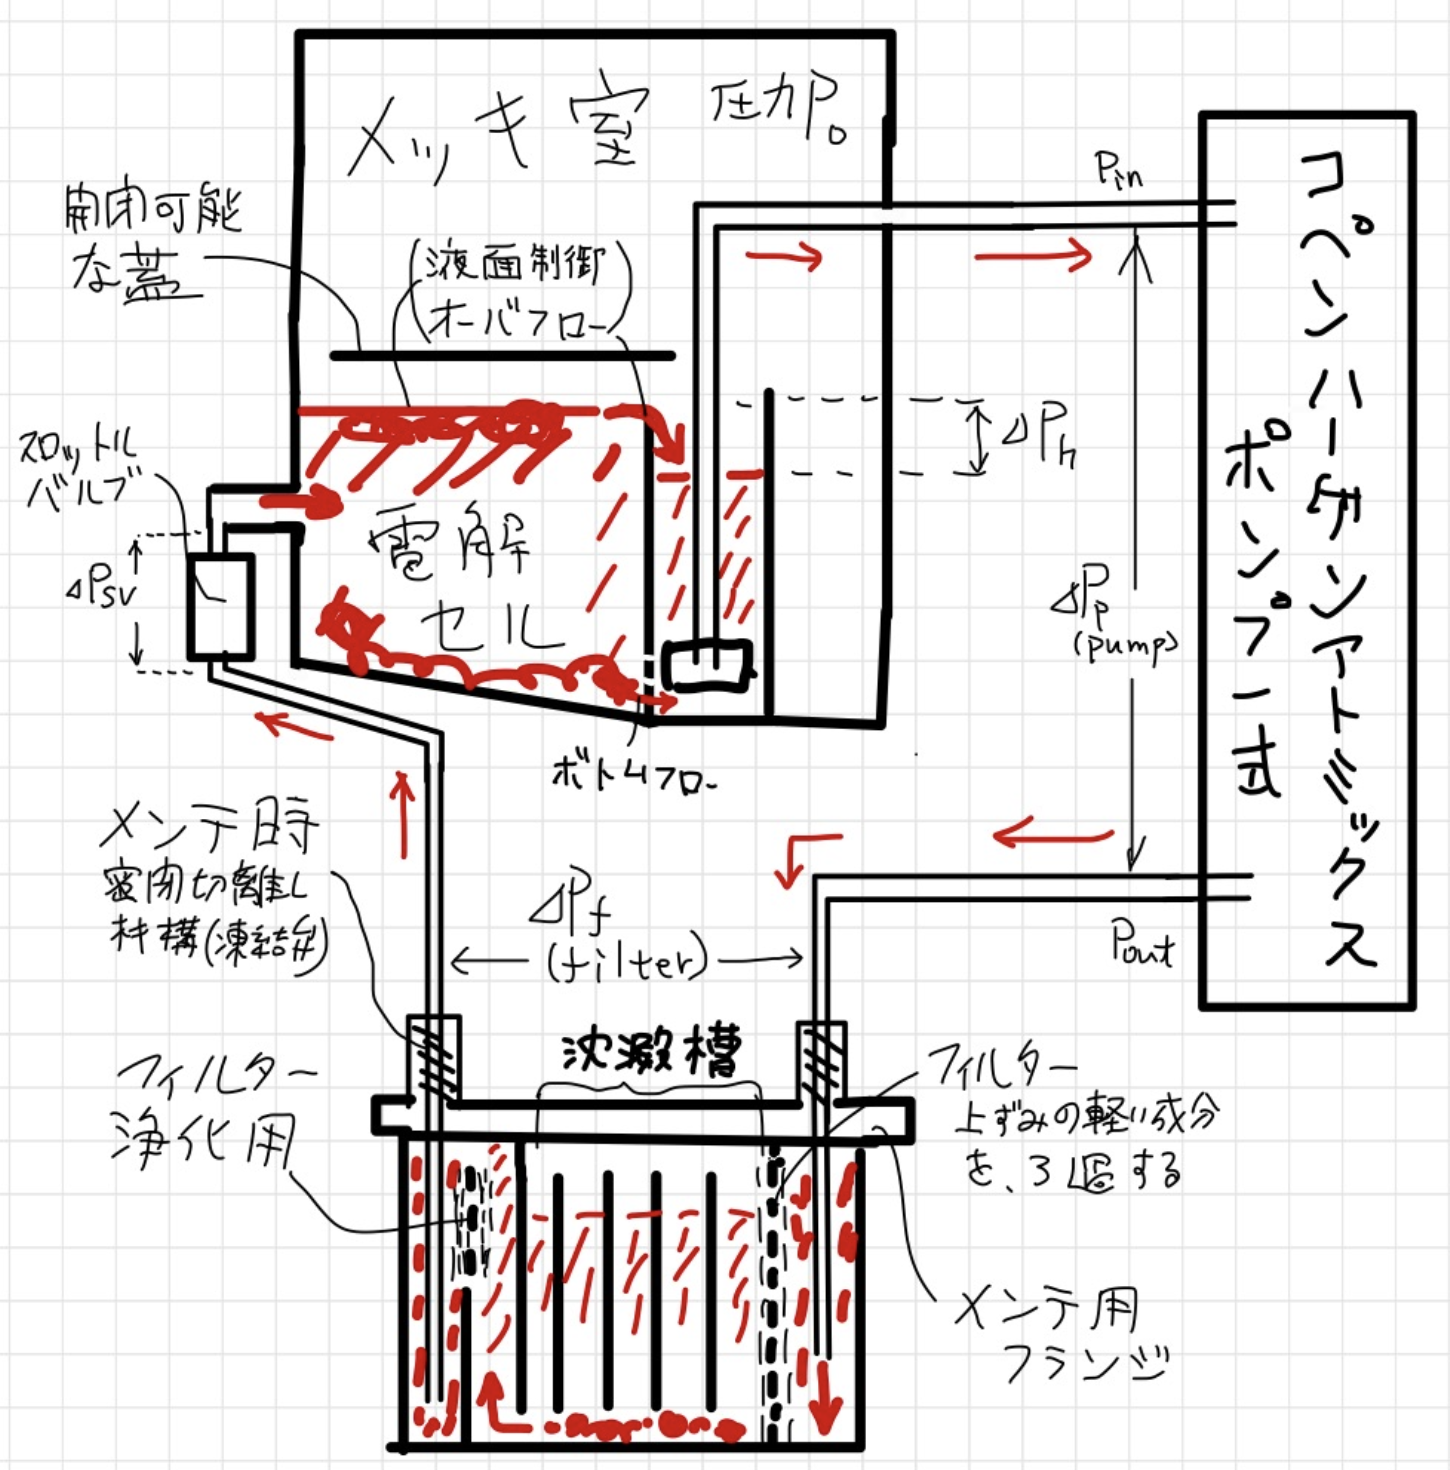 メッキ室 圧力P₀
開閉可能
な蓋
(液面制御
オーバフロー)
Pin
コペンハーゲンアトミックス
ポンプ式
ΔPh
スロットル
バルブ
ΔPsv
電解
セル
ΔPp
(pump)
ボトムフロー
メンテ時
密閉切離し
機構(凍結弁)
ΔPf
(filter)
Pout
沈澱槽
フィルター
浄化用
フィルター
上ずみの軽い成分
を、ろ過する
メンテ用
フランジ